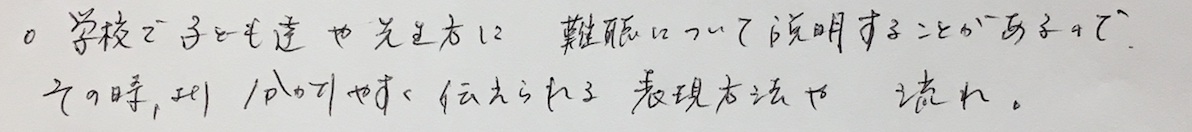 ○ 学校で子ども達や先生方に 難聴について説明することがあるので、
その時,より分かりやすく伝えられる 表現方法や 流れ。